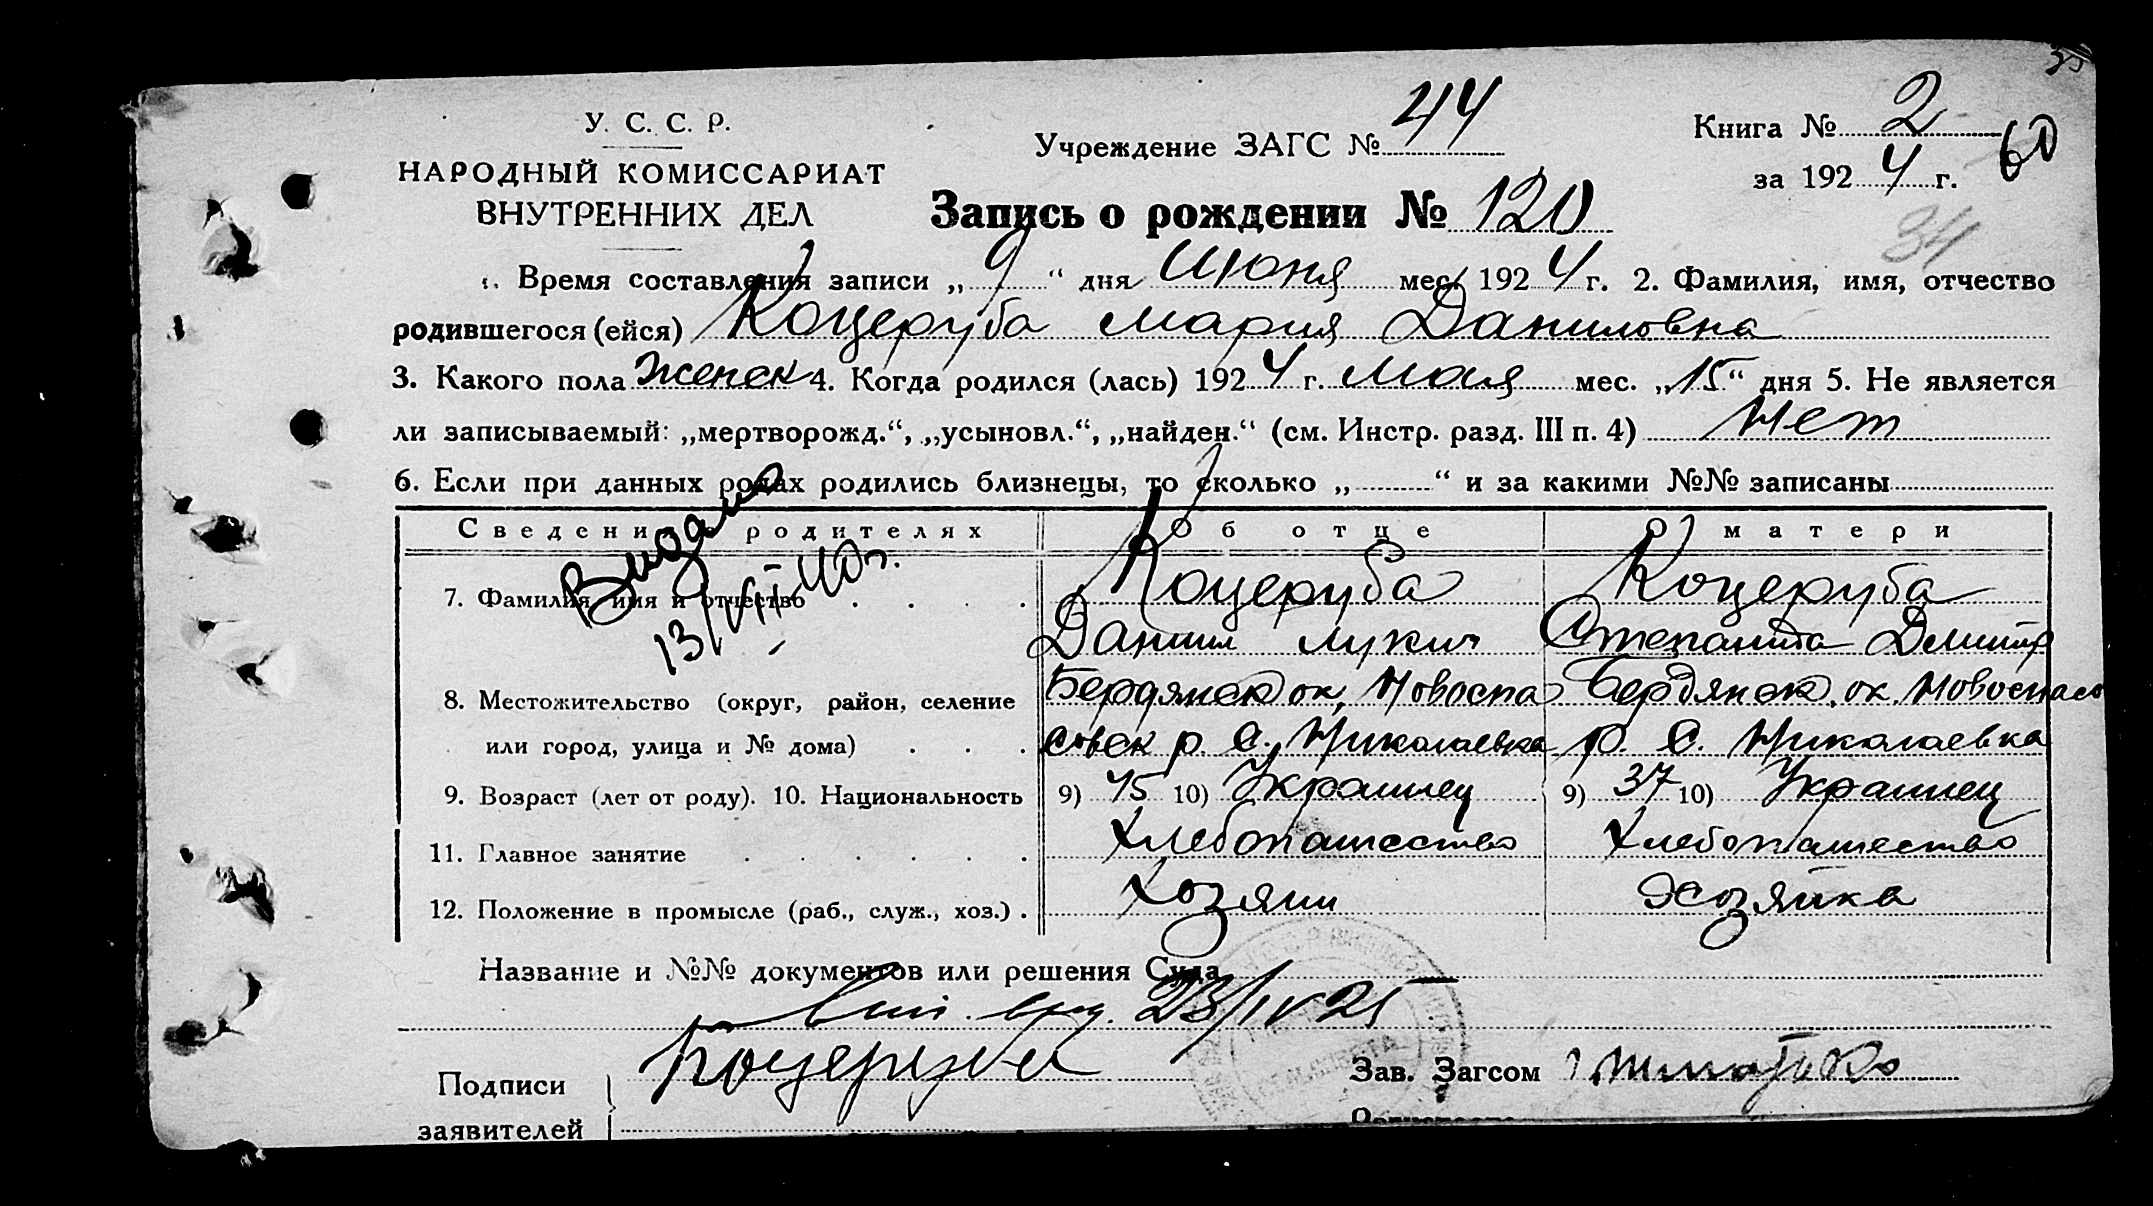 У. С. С. Р.
НАРОДНЫЙ КОМИССАРИАТ
ВНУТРЕННИХ ДЕЛ
Учреждение ЗАГС № 44
Книга № 2
за 1924 г.
60
34
Запись о рождении № 120
1. Время составления записи „9“ дня Июня мес. 1924 г. 2. Фамилия, имя, отчество
родившегося (ейся) Коцеруба Мария Даниловна
3. Какого пола женск 4. Когда родился (лась) 1924 г. Мая мес. „15“ дня 5. Не является
ли записываемый: „мертворожд.“, „усыновл.“, „найден.“ (см. Инстр. разд. III п. 4) Нет
6. Если при данных родах родились близнецы, то сколько „ “ и за какими №№ записаны
Сведения о родителях Об отце О матери
Видано
13/VII-40 г.
7. Фамилия, имя и отчество Коцеруба Коцеруба
Данил Лукич Степанида Дмитр
8. Местожительство (округ, район, селение Бердянск ок, Новоспа Бердянск. ок. Новоспасо
или город, улица и № дома) совск р с. Николаевка р. с. Николаевка
9. Возраст (лет от роду). 10. Национальность 9) 45 10) Украинец 9) 37 10) Украинец
11. Главное занятие Хлебопашество Хлебопашество
12. Положение в промысле (раб., служ., хоз.) Хозяин Хозяйка
Название и №№ документов или решения Суда
23/IV 25
Подписи Коцеруба Зав. Загсом
заявителей